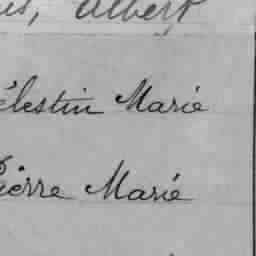 Albert
élestin Marie
ierre Marie